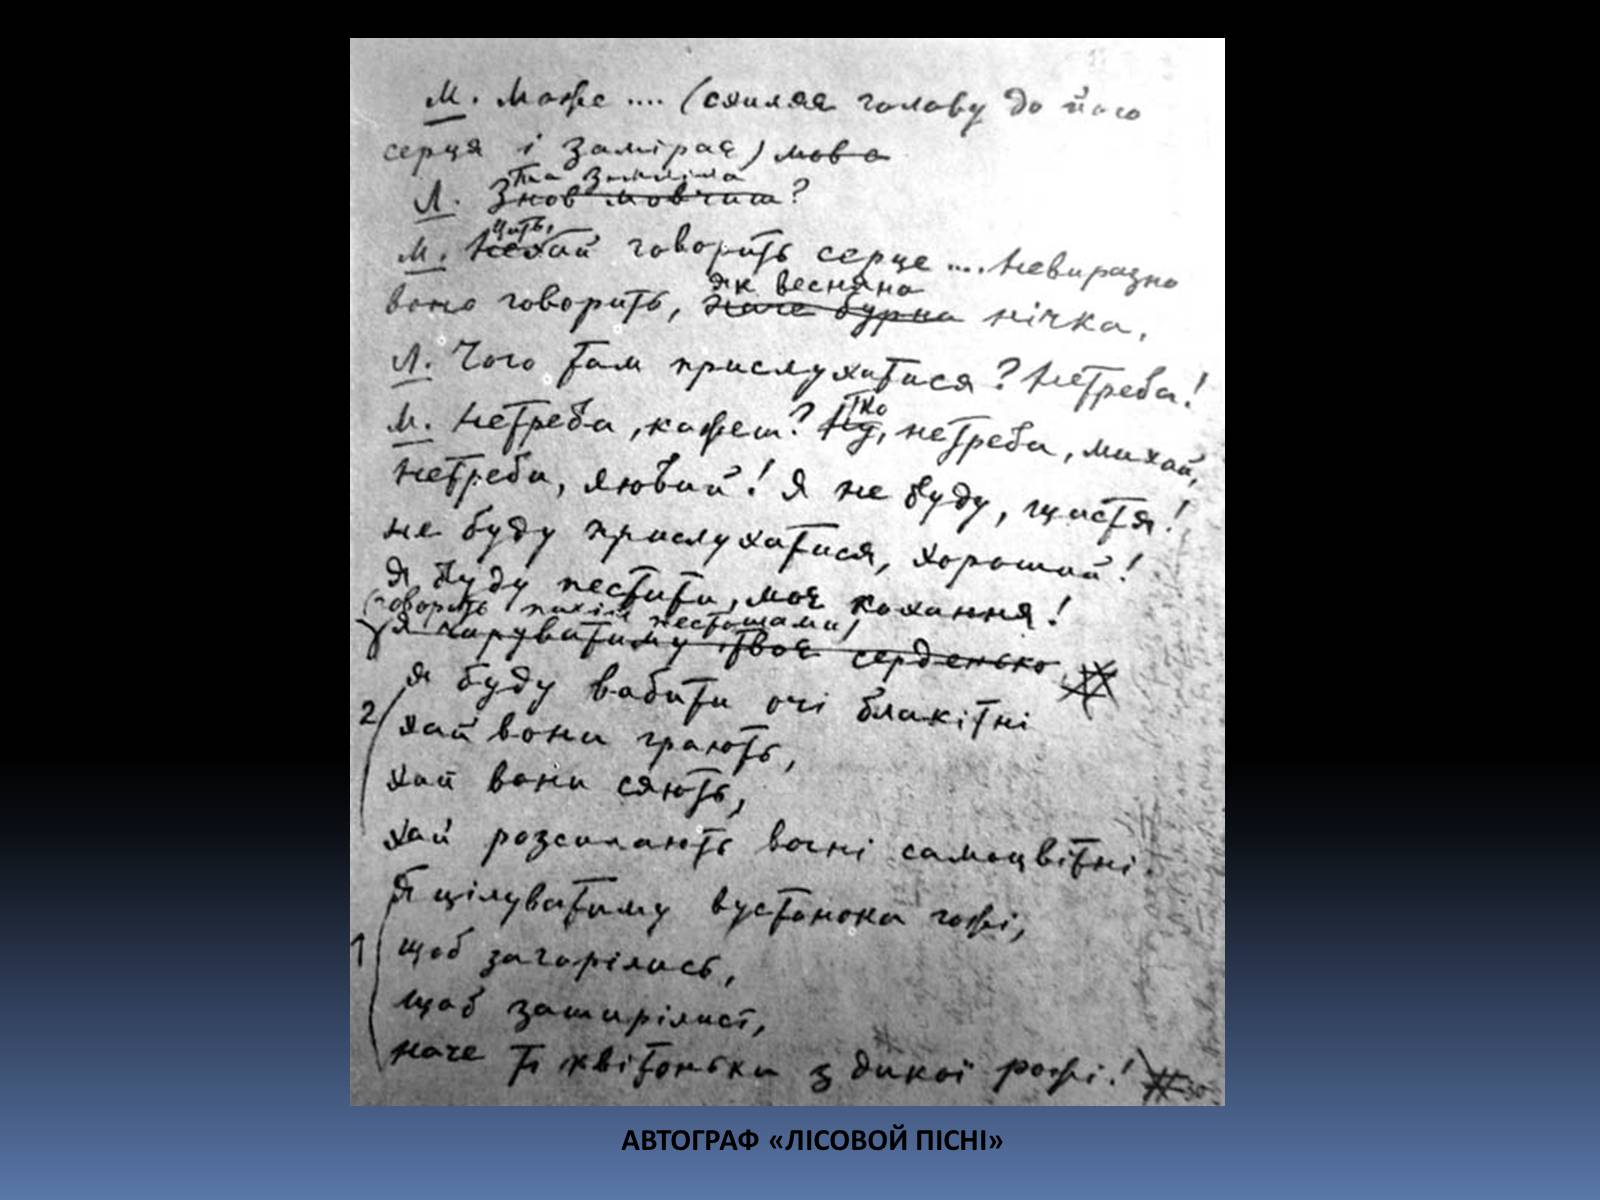 М. Може .... (схиляє голову до його
серця і замірає) мова
та заніміла
Л. Знов мовчиш?
Цить,
М. Нехай говорить серце .... Невиразно
як весняна
воно говорить, наче бурна нічка.
Л. Чого там прислухатися? Не треба!
М. Не треба, кажеш? Тко, не треба, милий,
не треба, любий! Я не буду, щастя!
не буду прислухатися, хороший!
Я буду пестити, моє кохання!
(говорить пестощами)
Я чаруватиму твоє серденько
Я буду вабити очі блакітні
2 хай вони грають,
хай вони сяють,
хай розсипають вогні самоцвітні.
Я цілуватиму вустонока гожі,
щоб загорілись,
1 щоб зашарілись,
наче ті квітоньки з дикої рожі!
АВТОГРАФ «ЛІСОВОЙ ПІСНІ»